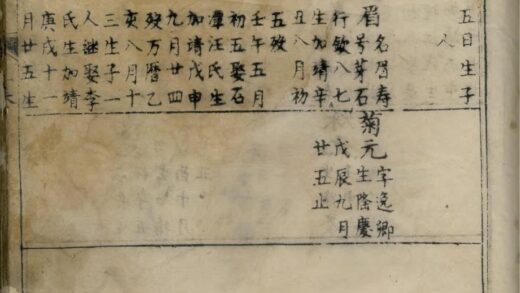 五日生子
人
眉 名啓寿
号芽石
行欽八七
生加靖辛
丑八月初
五歿
壬午五月
初五娶石
潭汪氏生
加靖戊申
九月廿四
歿万曆乙
亥八月十
三生子一
人继娶李
氏生加靖
庚戌十一
月廿五生
菊元 字逸卿
生隆慶
戊辰九月
廿五止